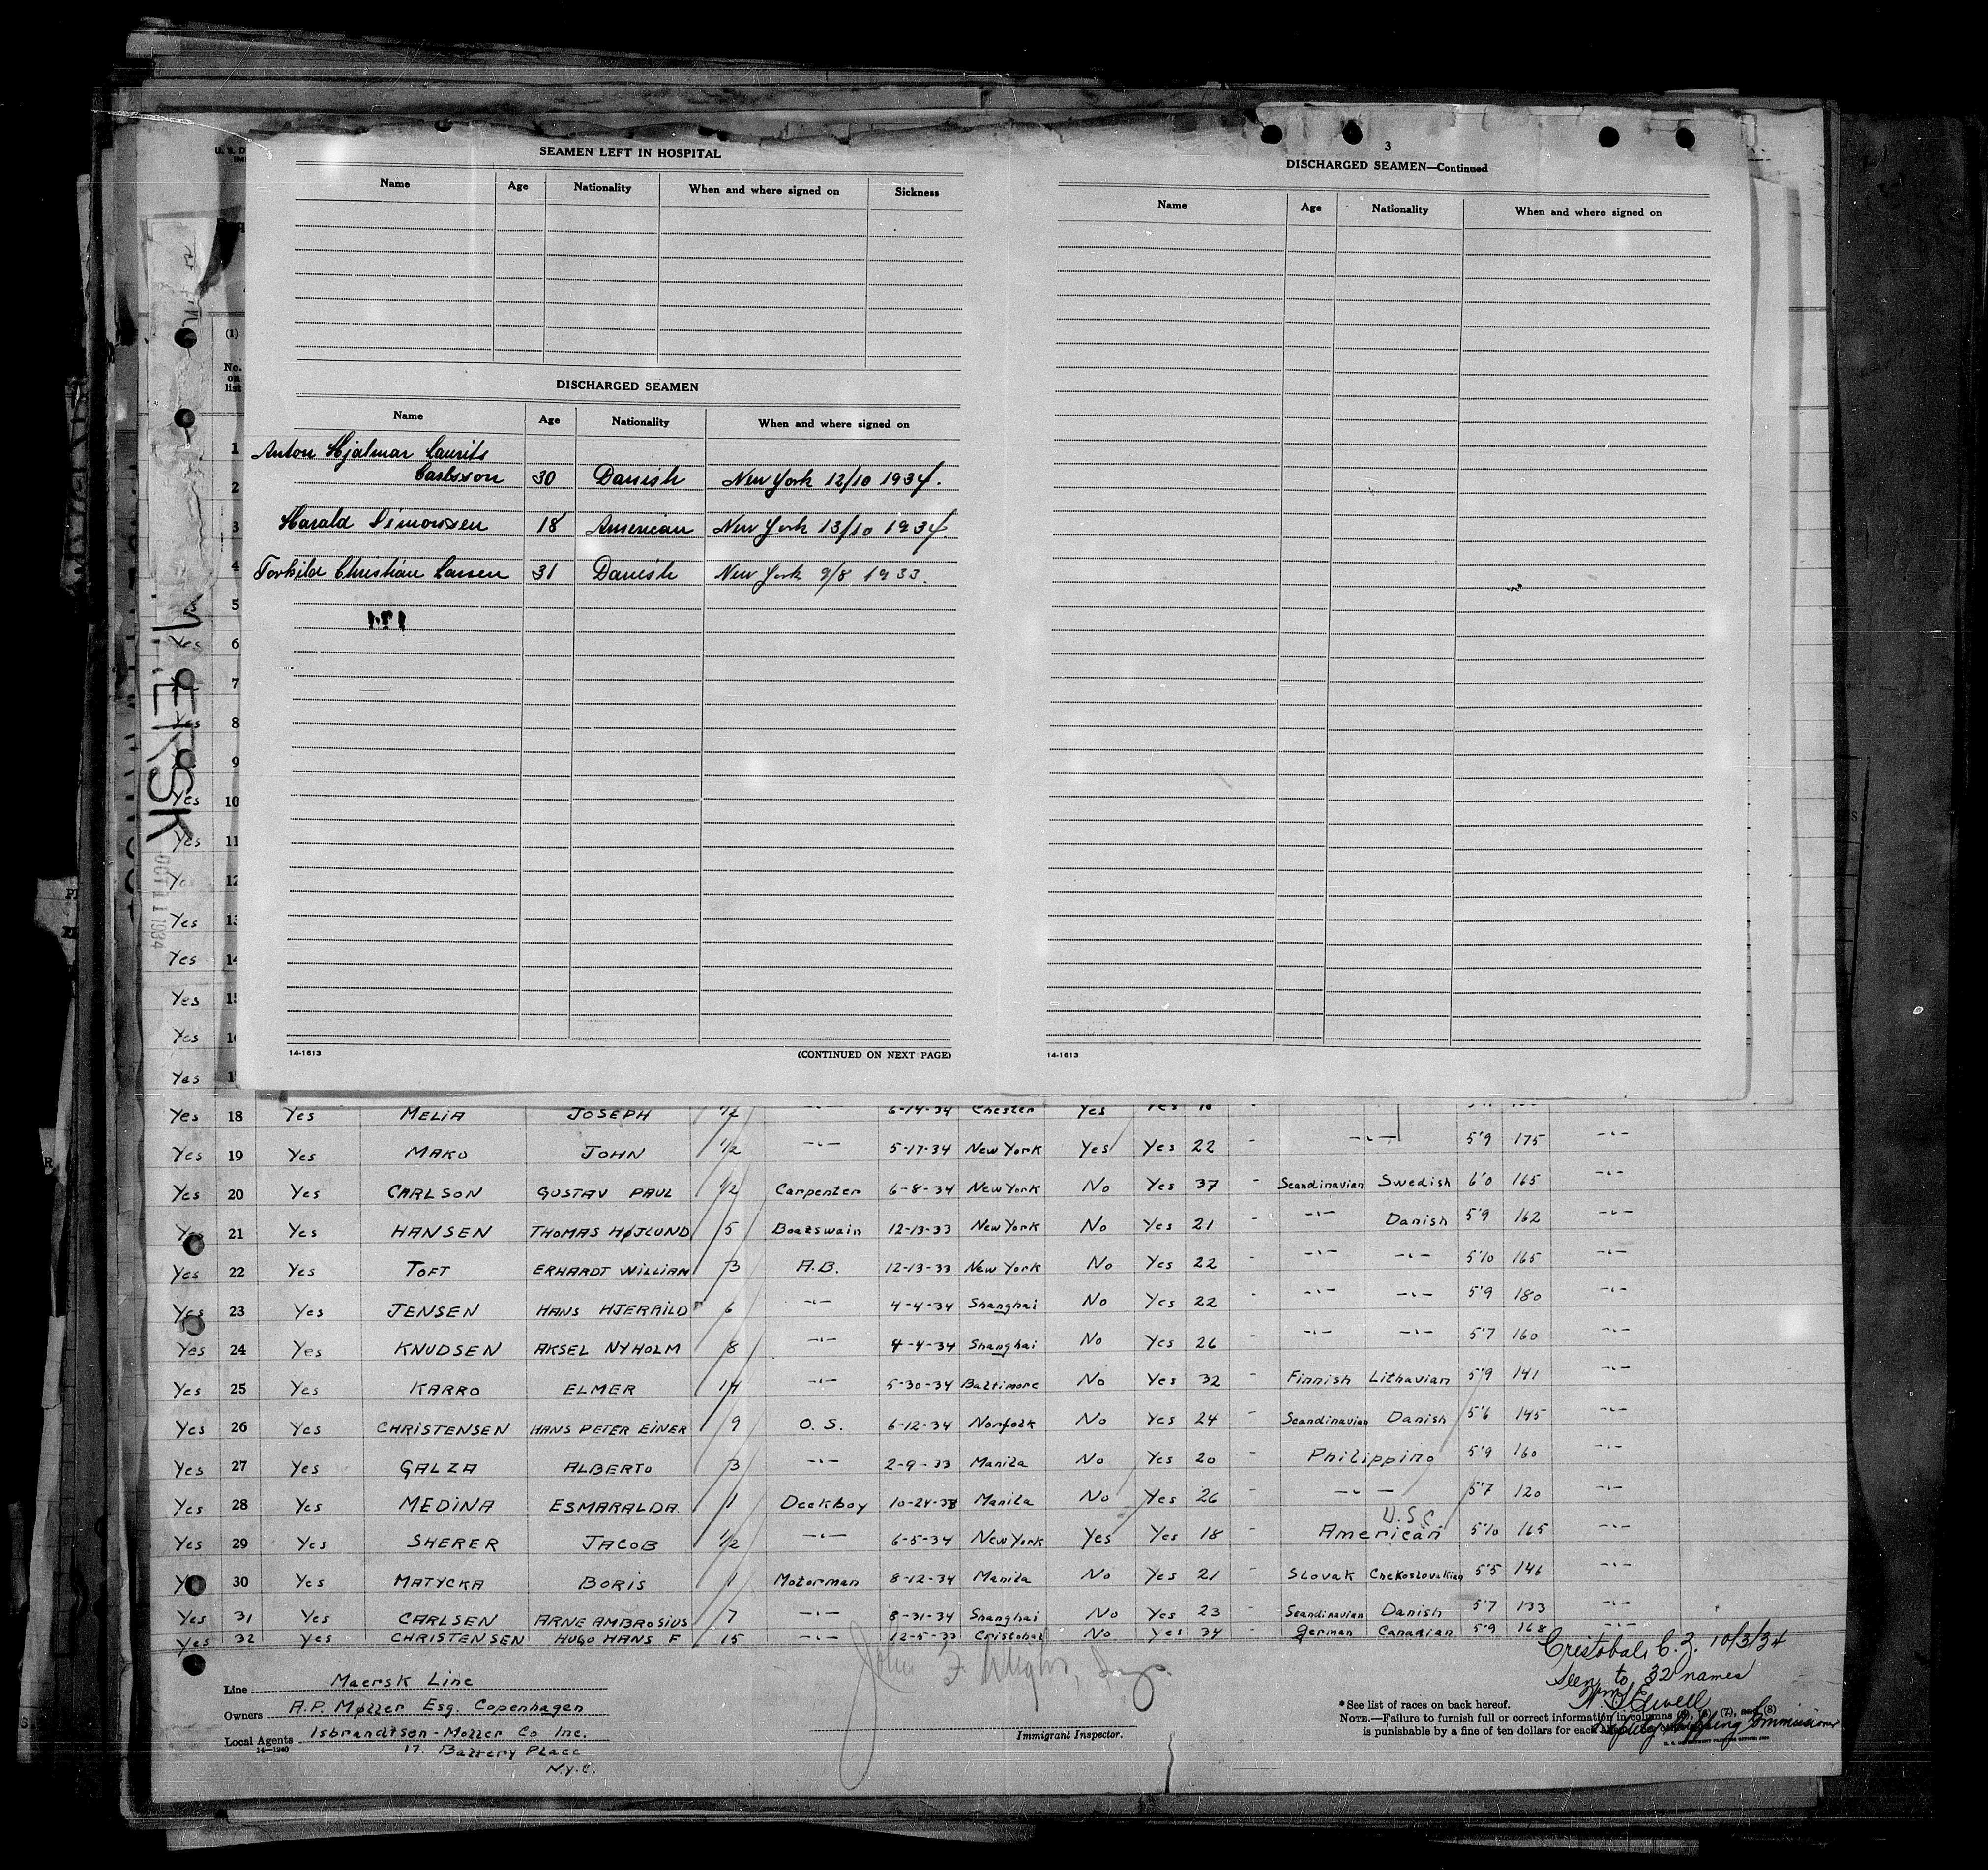 SEAMEN LEFT IN HOSPITAL
Name Age Nationality When and where signed on Sickness
DISCHARGED SEAMEN
Name Age Nationality When and where signed on
Anton Hjalmar Laurits
Carlsson 30 Danish New York 12/10 1934.
Harald Simonsen 18 American New York 13/10 1934.
Torkild Christian Larsen 31 Danish New York 9/8 1933.
14-1613 (CONTINUED ON NEXT PAGE)
3
DISCHARGED SEAMEN—Continued
Name Age Nationality When and where signed on
14-1613
(1)
No. on list
1
2
3
4
5
Yes 6
7
Yes 8
9
Yes 10
Yes 11
12
Yes 13
Yes 14
Yes
Yes
Yes
ERSK
OCT 11 1934
Yes 18 Yes MELIA JOSEPH 1/2 -"- 6-14-34 Chester Yes Yes
Yes 19 Yes MAKO JOHN 1/2 -"- 5-17-34 New York Yes Yes 22 - -"- 5'9 175 -"-
Yes 20 Yes CARLSON GUSTAV PAUL 1/2 Carpenter 6-8-34 New York No Yes 37 - Scandinavian Swedish 6'0 165 -"-
Yes 21 Yes HANSEN THOMAS HØJLUND 5 Boatswain 12-13-33 New York No Yes 21 - -"- Danish 5'9 162 -"-
Yes 22 Yes TOFT ERHARDT WILLIAM 3 A.B. 12-13-33 New York No Yes 22 - -"- -"- 5'10 165 -"-
Yes 23 Yes JENSEN HANS HJERRILD 6 -"- 4-4-34 Shanghai No Yes 22 - -"- -"- 5'9 180 -"-
Yes 24 Yes KNUDSEN AKSEL NYHOLM 8 -"- 4-4-34 Shanghai No Yes 26 - -"- -"- 5'7 160 -"-
Yes 25 Yes KARRO ELMER 14 -"- 5-30-34 Baltimore No Yes 32 - Finnish Lithavian 5'9 141 -"-
Yes 26 Yes CHRISTENSEN HANS PETER EINER 9 O.S. 6-12-34 Norfolk No Yes 24 - Scandinavian Danish 5'6 145 -"-
Yes 27 Yes GALZA ALBERTO 3 -"- 2-9-33 Manila No Yes 20 - Philippino 5'9 160 -"-
Yes 28 Yes MEDINA ESMARALDA. 1 Deckboy 10-24-33 Manila No Yes 26 - -"- 5'7 120 -"-
U.S.C.
Yes 29 Yes SHERER JACOB 1/2 -"- 6-5-34 New York Yes Yes 18 - American 5'10 165 -"-
Yes 30 Yes MATYCKA BORIS 1 Motorman 8-12-34 Manila No Yes 21 - Slovak Chekoslovakian 5'5 146 -"-
Yes 31 Yes CARLSEN ARNE AMBROSIUS 7 -"- 8-31-34 Shanghai No Yes 23 - Scandinavian Danish 5'7 133 -"-
Yes 32 Yes CHRISTENSEN HUGO HANS F 15 -"- 12-5-33 Cristobal No Yes 34 - German Canadian 5'9 168 -"-
Cristobal, C.Z. 10/3/34
Seen to 32 names
Deputy Shipping Commissioner
Line Maersk Line
Owners A.P. Møller Esq. Copenhagen
Local Agents Isbrandtsen-Moller Co Inc.
14—1240
17. Battery Place
N.Y.C.
John F.
Immigrant Inspector.
*See list of races on back hereof.
NOTE.—Failure to furnish full or correct information in columns (5), (6), (7), and (8)
is punishable by a fine of ten dollars for each